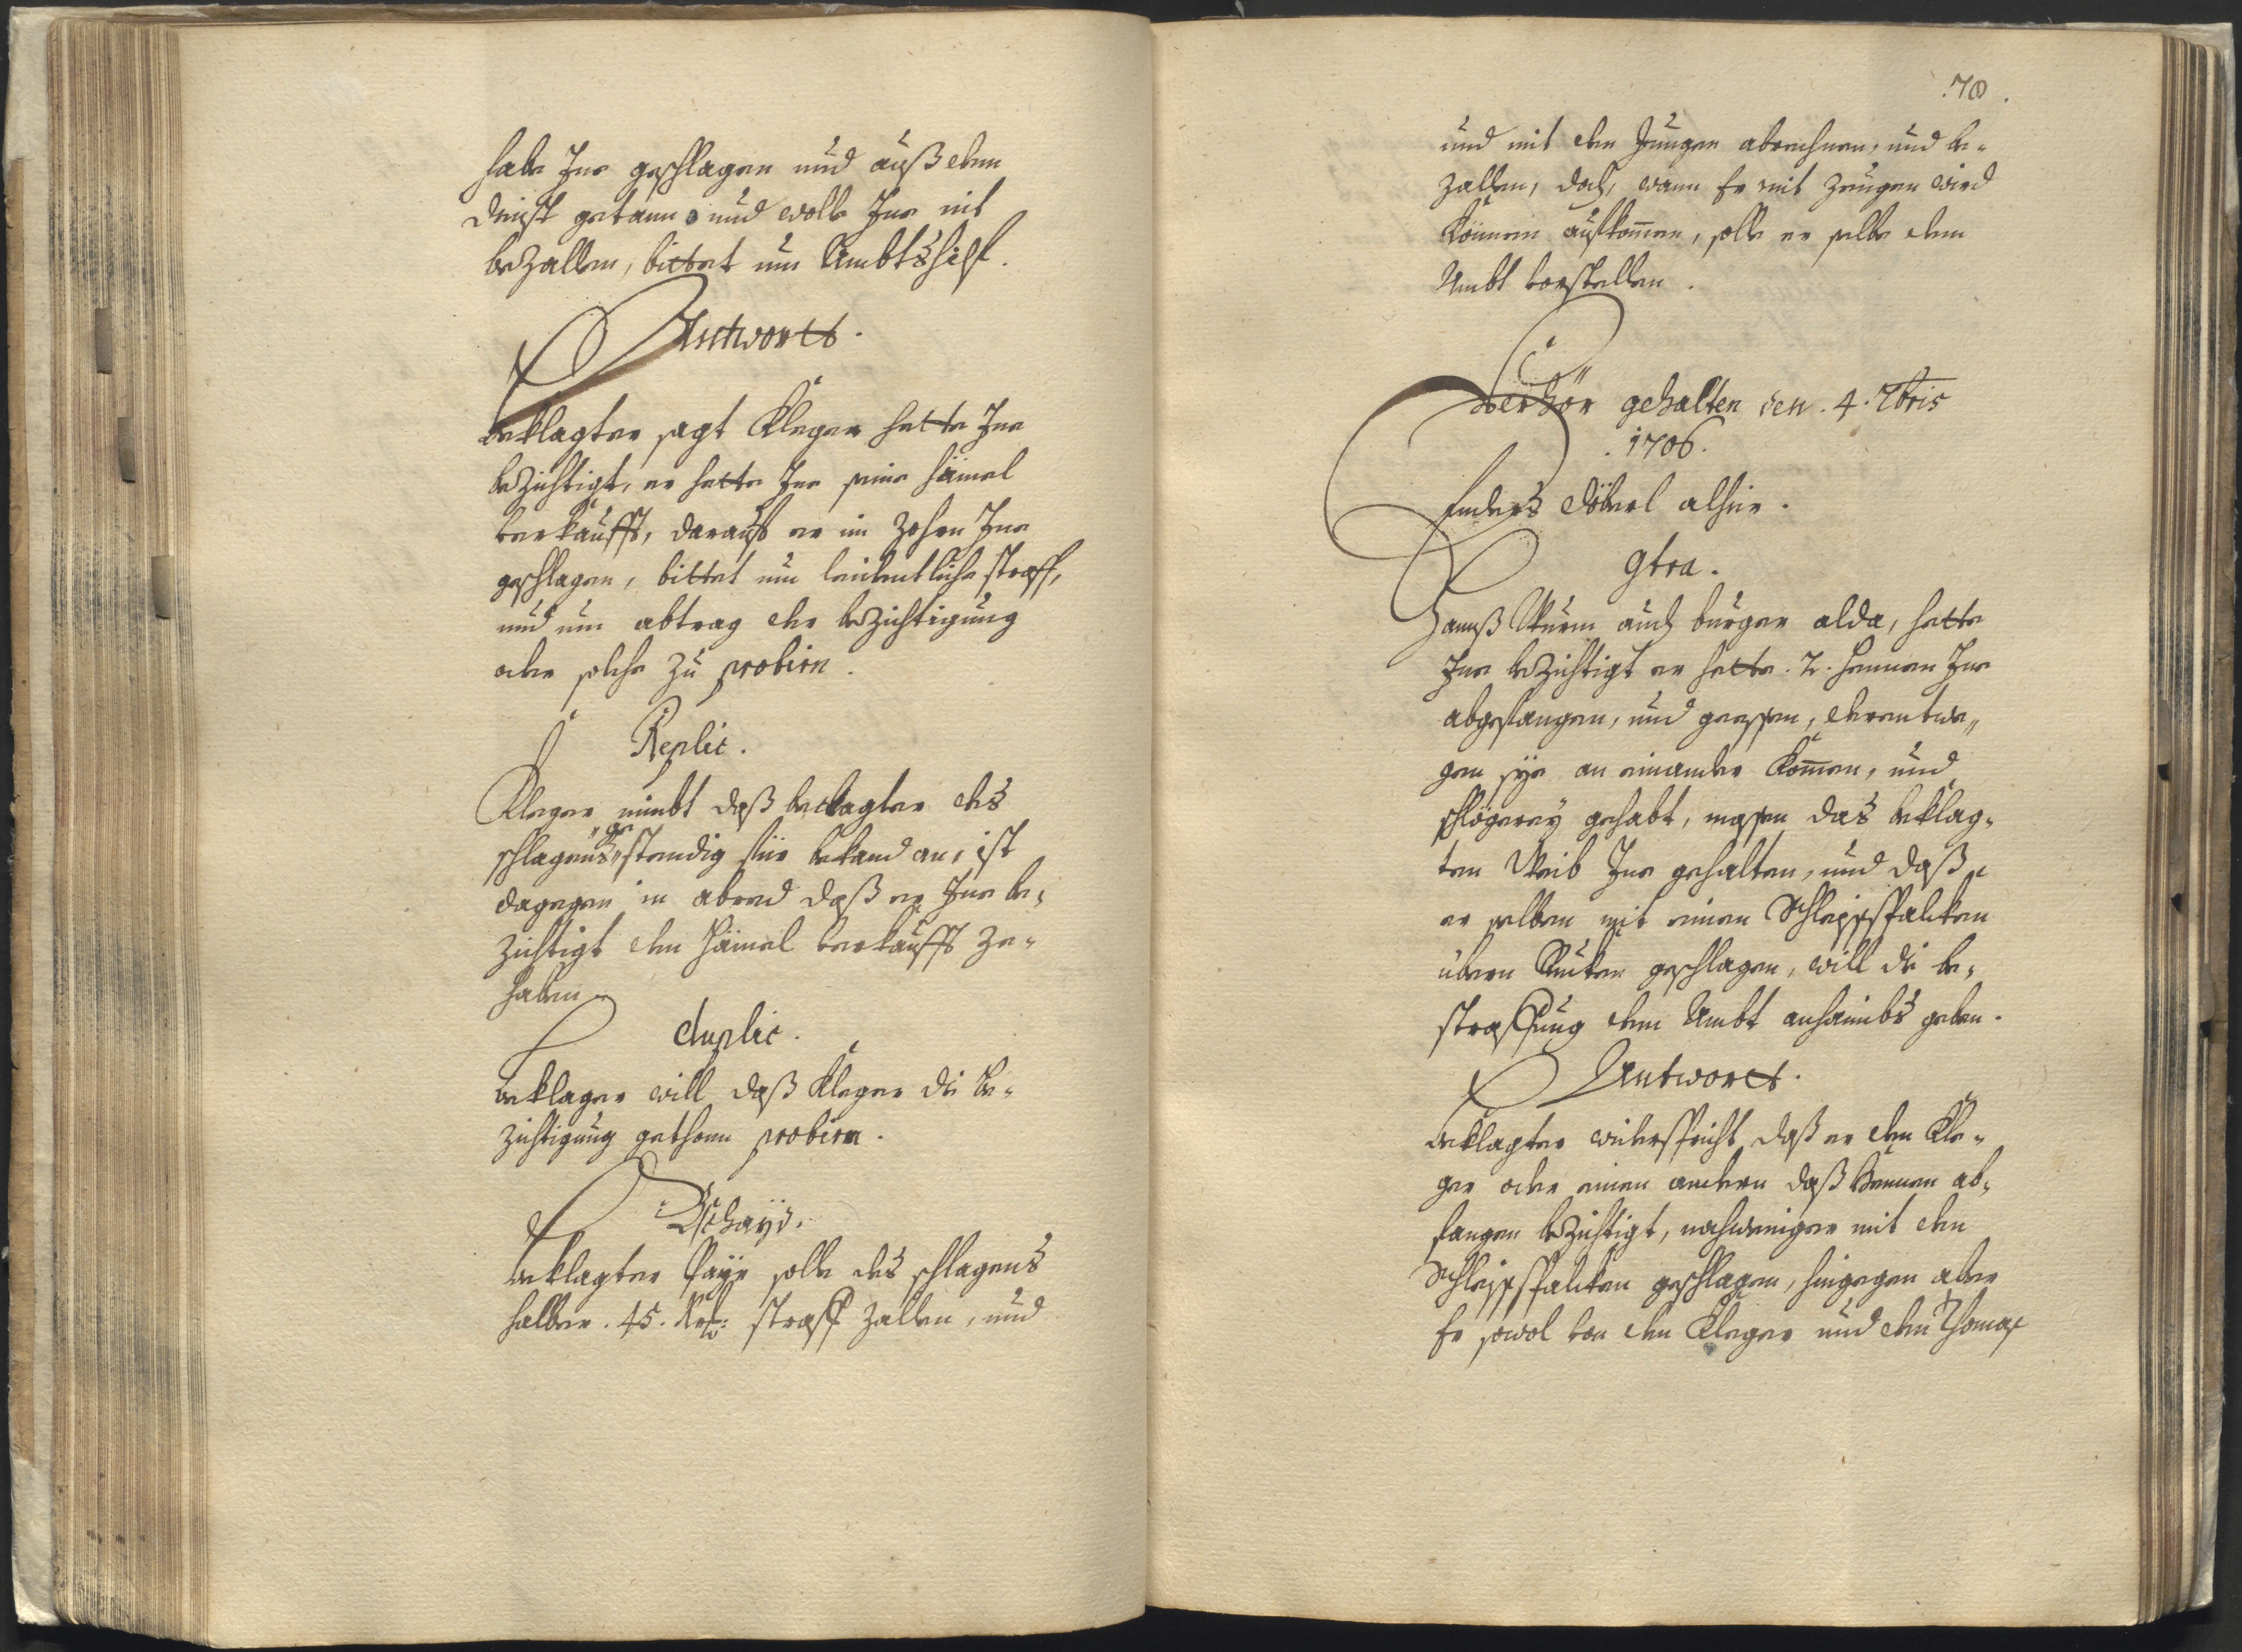 habe Ine geschlagen und auß dem
dinst getann und wolle Ine nit
bezallen, bittet um Ambtshilf.
Antwortt.
beklagter sagt Kleger hette Ine
bezichtigt, er hette Ine seine häimel
verkaufft, darauff er im Zohrn Ine
geschlagen, bittet um leidentliche straff,
und um abtrag der bezichtigung
oder solche zu probirn.
Replic.
Kleger nimbt daß beclagter des
schlagens gestendig für bekand an, ist
dagegen in abred daß er Ine be-
zichtigt den Häimel verkaufft ze-
haben.
duplic.
beklager will daß Kleger die be-
zichtigung gethonn probirn.
Bschayd.
beklagter solle des schlagens
halber .45. Krz: straff zallen, und
.70.
und mit den Jungen abrechnen, und be-
zallen, doch, wann Er mit Zeugen wird
können aufkommen, solle er selbe dem
Ambt vorstellen.
Verhör gehalten den .4. 7bris
.1706.
Enders Döberl alhier.
Ctra.
Hannß Wurm auch burger alda, hette
Ine bezichtigt er hette .2. hennen Ine
abgefangen, und gegessen, derentwe-
gen sye an einander kommen, und
schlögerey gehabt, massen das beklag-
ten Weib Ine gehalten, und daß
er selben mit einen Schleisspalcken
übern Rucken geschlagen, will die be-
straffung dem Ambt anhaimbs geben.
Antwortt.
beklagter widerspricht, daß er den Kle-
ger oder einen andern daß hennen ab-
fangen bezichtigt, nochweniger mit den
Schleisspalcken geschlagen, hingegen aber
Er sowol von den Kleger und den Thomas